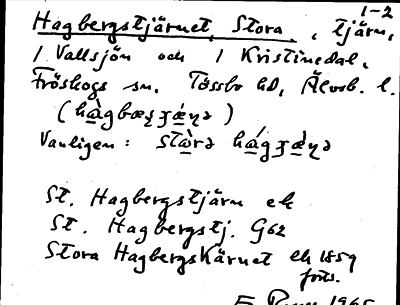 1-2
Hagbergstjärnet, Stora, tjärn,
i Vallsjön och i Kristinedal,
Fröskogs sn. Tössbo hd, Älvsb. l.
(hàgbæʂʒǽɳə)
Vanligen: stàrə hágʒæ̀ɳə
St. Hagbergstjärn ek
St. Hagbergstj. G62
Stora Hagbergskärnet ek 1859
forts.
1965